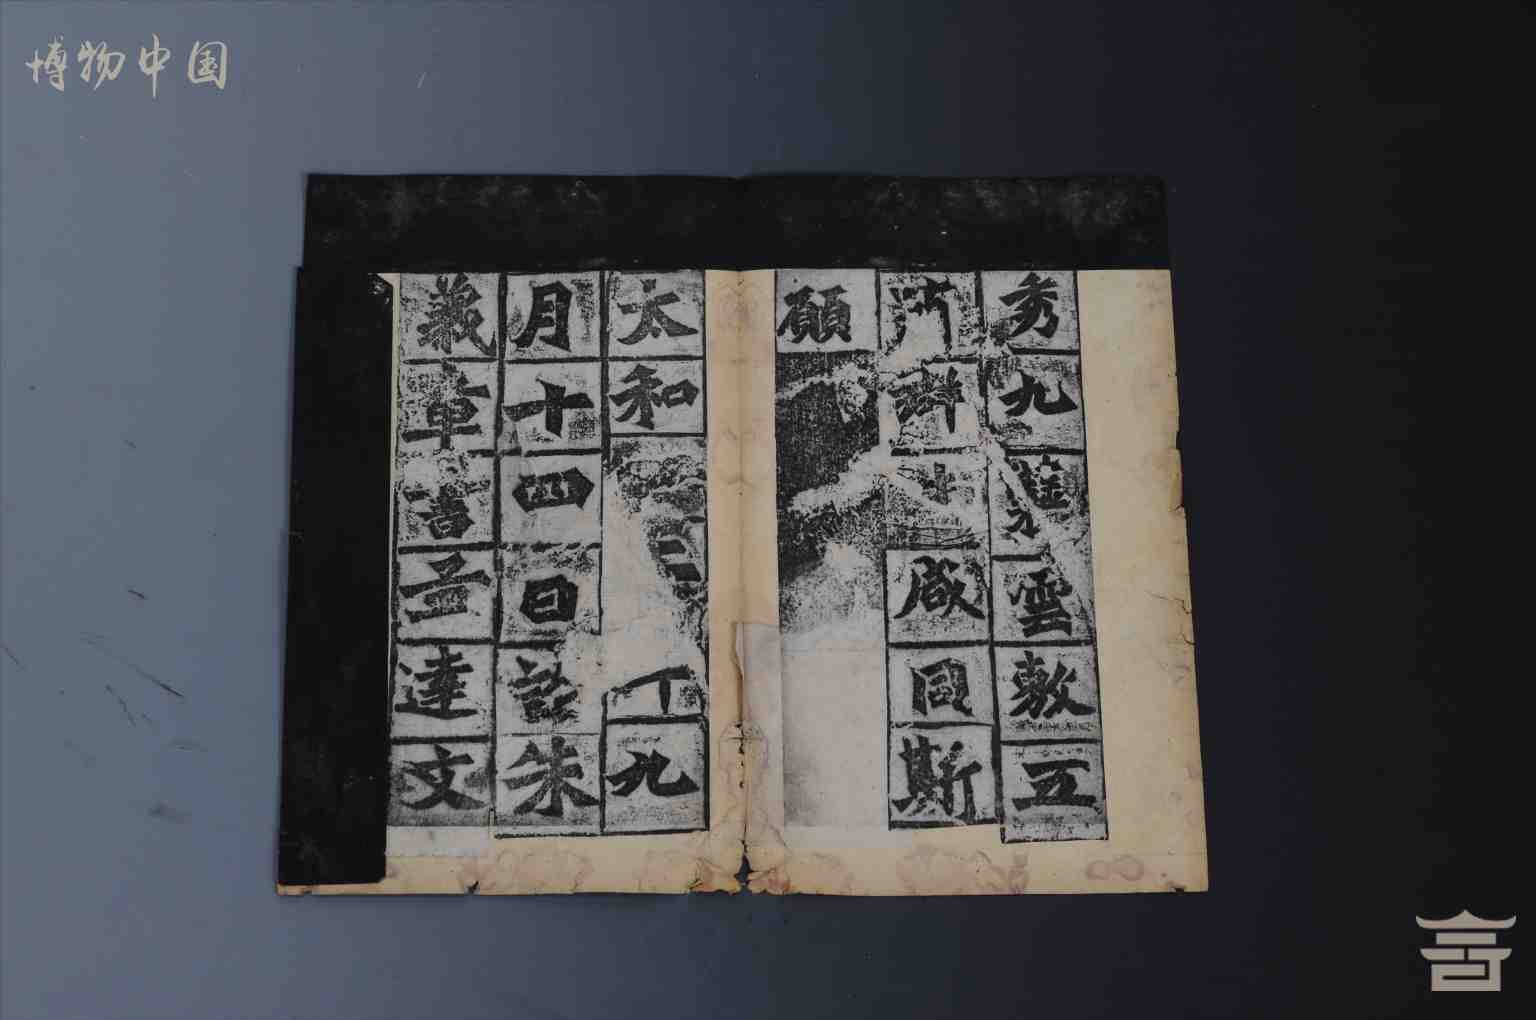 博物中国
秀九雲敷五
群咸同斯
願
太和二九
月十四日訖朱
義章書孟達文